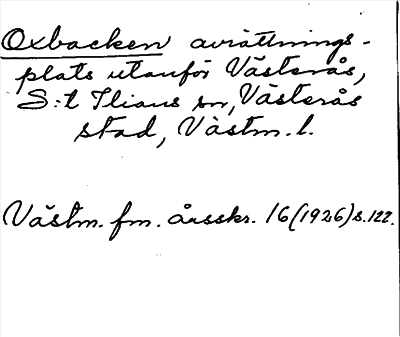 Oxbacken avrättnings-
plats utanför Västerås,
S:t Ilians sn, Västerås
stad, Västm. l.
Västm. fm. årsskr. 16 (1926) s. 122.